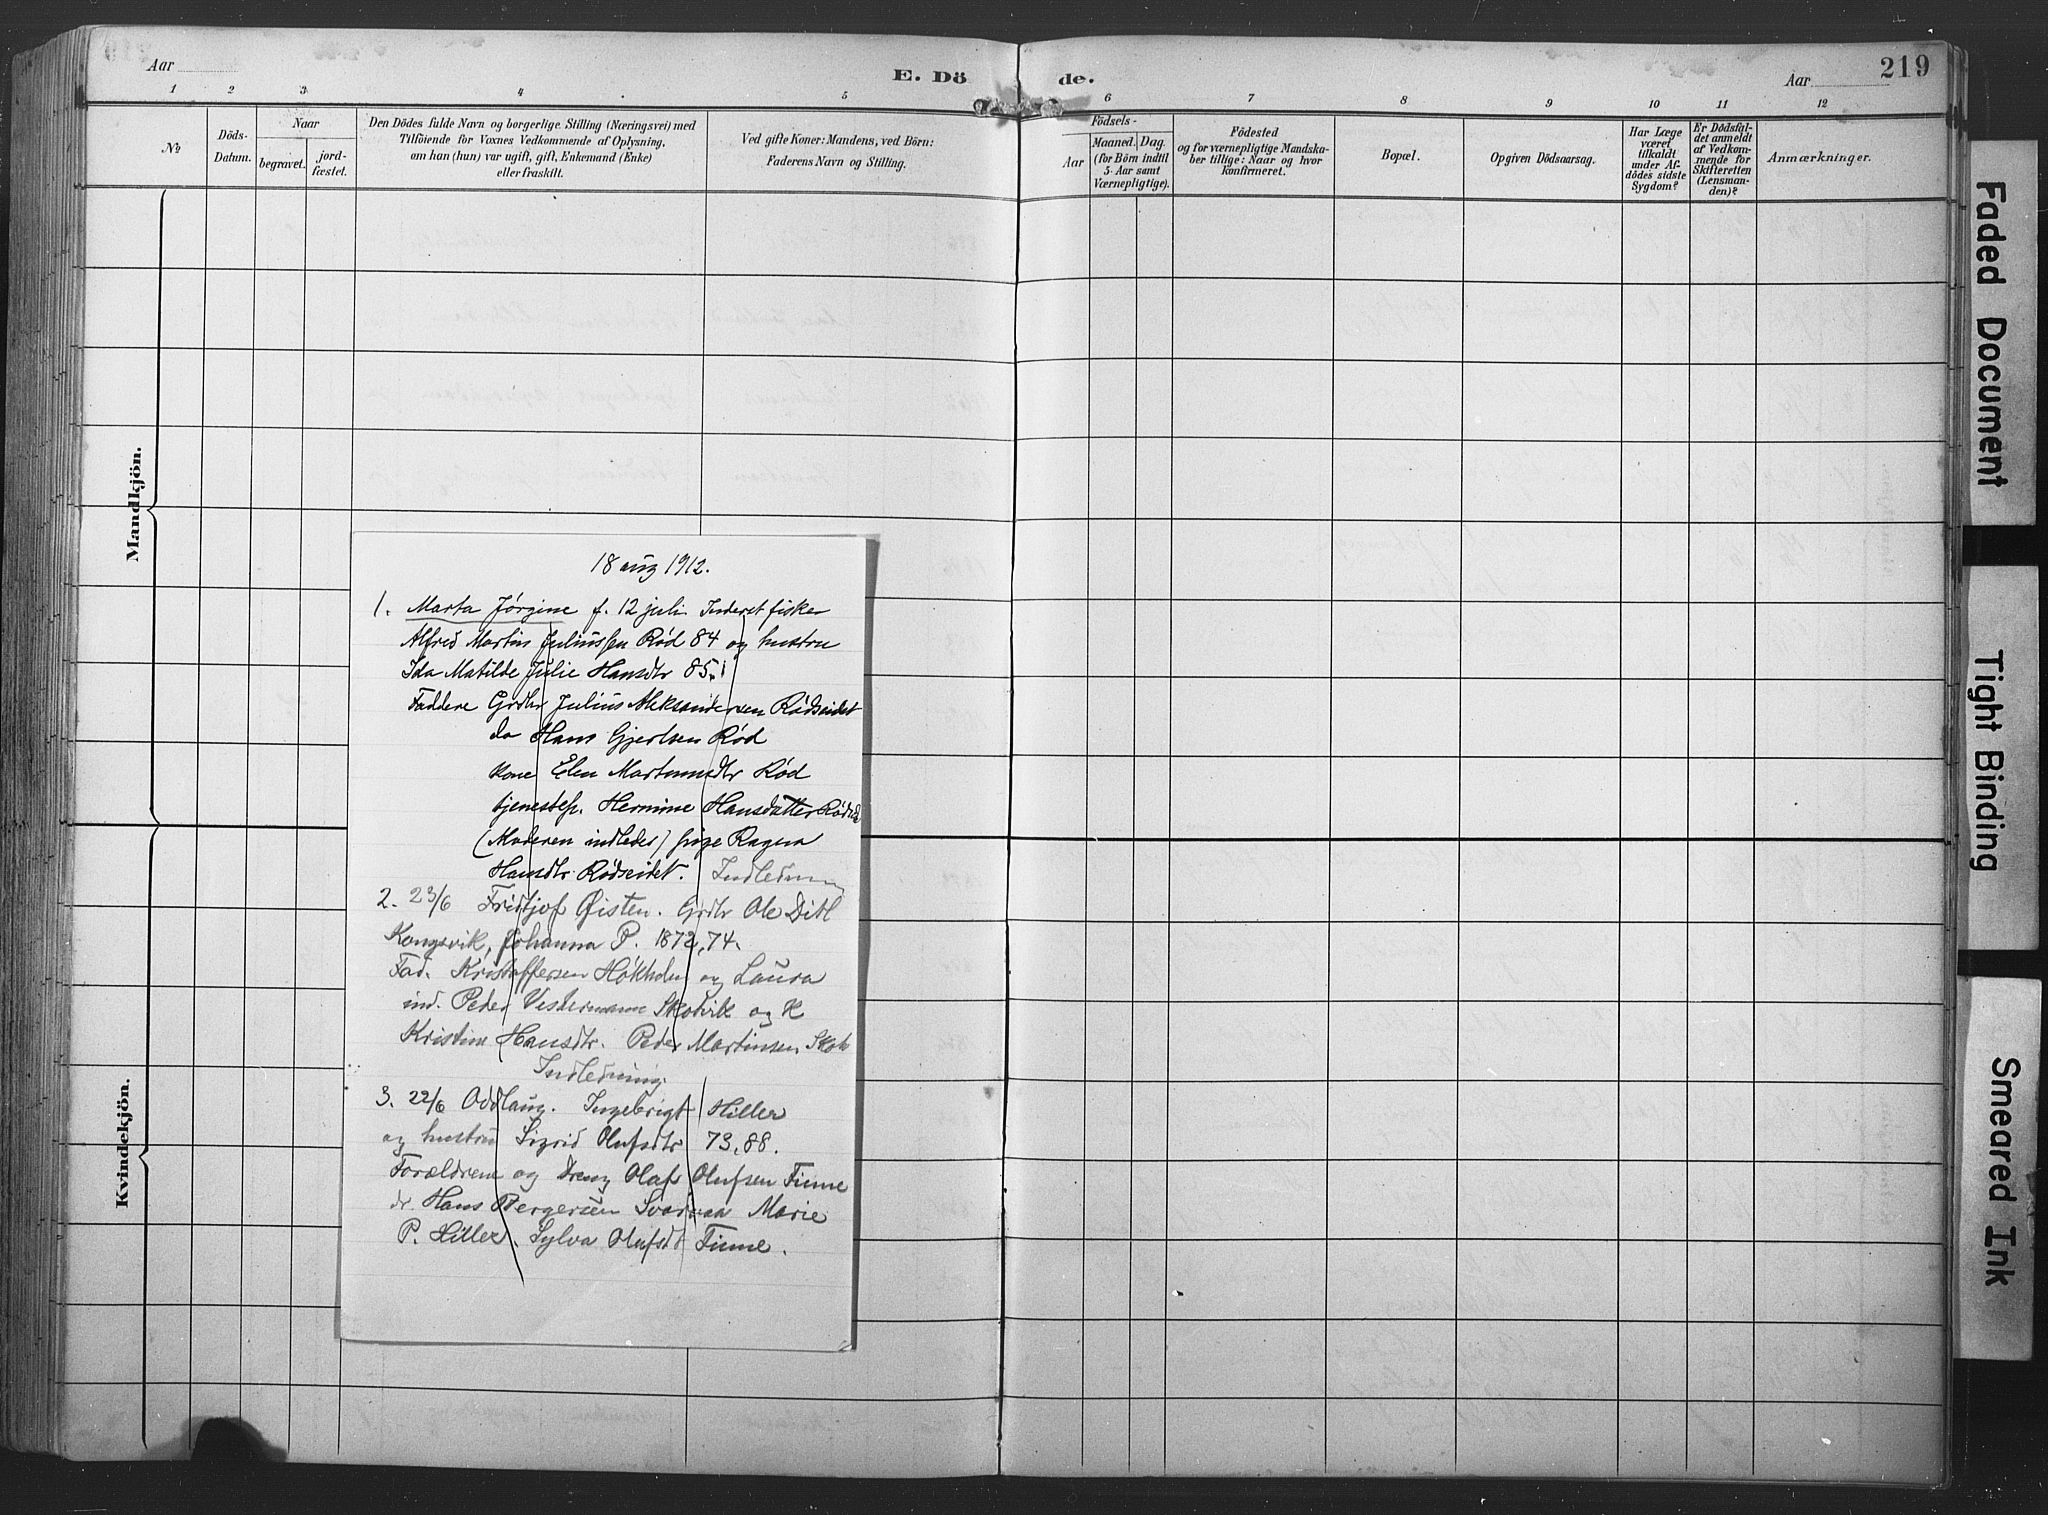 Aar
E. Dö
de.
Aar
219
1
2
3
4
5
6
7
8
9
10
11
12
No
Döds-
Datum.
Naar
begravet.
jord-
fæstet.
Den Dödes fulde Navn og borgerlige Stilling (Næringsvei) med
Tilföiende for Voxnes Vedkommende af Oplysning,
om han (hun) var ugift, gift, Enkemand (Enke)
eller fraskilt.
Ved gifte Koner: Mandens, ved Börn:
Faderens Navn og Stilling.
Födsels-
Aar
Maaned.
Dag.
(for Börn indtil
5 Aar samt
Værnepligtige).
Födested
og for værnepligtige Mandska-
ber tillige: Naar og hvor
konfirmeret.
Bopæl.
Opgiven Dödsaarsag.
Har Læge
været
tilkaldt
under Af-
dödes sidste
Sygdom?
Er Dödsfal-
det anmeldt
af Vedkom-
mende for
Skifteretten
(Lensman-
den)?
Anmærkninger.
Mandkjön.
Kvindekjön.
18 aug 1912.
1. Marta Jørgine f. 12 juli. Inderst fisker
Alfred Martin Juliussen Rød 84 og hustru
Ida Matilde Julie Hansdtr 85.
Faddere Grdbr Julius Aleksandersen Rødseidet
do Hans Gjertsen Rød
kone Elen Rød
tjenestep. Hermine Hansdatter
(Moderen indleder) pige Ragna
Hansdtr Rødseidet. Indledning
2. 23/6 Fridtjof Øisten. Grdbr Ole Ditl
Kongsvik, Johanna P. 1872, 74.
Fad. Kristoffersen og Laura
ind. Peder Vestermann Skotvik og K
Kristine Hansdtr. Peder Martinsen Skotv
Indledning
3. 22/6 Oddlaug. Ingebrigt Hiller
og hustru Sigrid Olufsdtr 73, 88.
Forældrene og dreng Olaf Olufsen Finne
dr Hans Bergersen Marie
P. Hiller. Sylva Olufsdt Finne.
Faded Document
Tight Binding
Smeared Ink